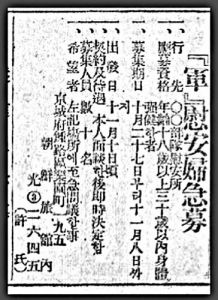 『軍』慰安婦急募
一、行先 ○○部隊慰安所
一、應募資格 年齡十八歲以上三十歲以內身體
强健者
一、募集期日 十月二十七日부터十一月八日까
지
一、出發日 十一月十日頃
一、契約及待遇 本人面談後卽時決定함
一、募集人員 數十名
一、希望者 左記場所에至急問議할事
京城府鍾路區樂園町一九五
朝鮮旅館內
光③二六四五
(許氏)